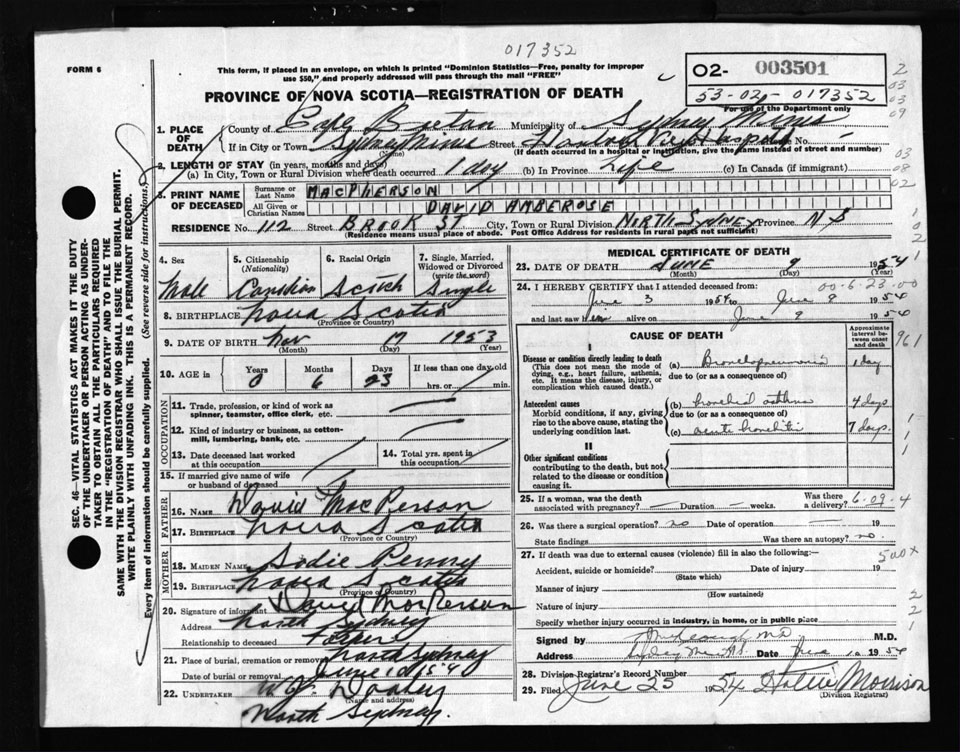 017352
FORM 6
This form, if placed in an envelope, on which is printed "Dominion Statistics—Free, penalty for improper
use $50," and properly addressed will pass through the mail "FREE"
02- 003501
53-02-017352
For use of the Department only
PROVINCE OF NOVA SCOTIA—REGISTRATION OF DEATH
1. PLACE OF DEATH County of Cape Breton Municipality of Sydney Mines
If in City or Town Sydney Mines Street Harbor View Hospital No.
(Name) (If death occurred in a hospital or institution, give the name instead of street and number)
2. LENGTH OF STAY (in years, months and days)
(a) In City, Town or Rural Division where death occurred 1 day (b) In Province Life (c) In Canada (if immigrant)
3. PRINT NAME OF DECEASED Surname or Last Name MACPHERSON
All Given or Christian Names DAVID AMBEROSE
RESIDENCE No. 112 Street BROOK ST City, Town or Rural Division NORTH SYDNEY Province N S
(Residence means usual place of abode. Post Office Address for residents in rural parts not sufficient)
4. Sex Male
5. Citizenship (Nationality) Canidian
6. Racial Origin Scotch
7. Single, Married, Widowed or Divorced (write the word) Single
8. BIRTHPLACE Nova Scotia
(Province or Country)
9. DATE OF BIRTH Nov 17 1953
(Month) (Day) (Year)
10. AGE in Years 0 Months 6 Days 23 If less than one day old hrs. or min.
OCCUPATION
11. Trade, profession or kind of work as spinner, teamster, office clerk, etc.
12. Kind of industry or business, as cotton-mill, lumbering, bank, etc.
13. Date deceased last worked at this occupation
14. Total yrs. spent in this occupation
15. If married give name of wife or husband of deceased
FATHER
16. Name David MacPerson
17. Birthplace Nova Scotia
(Province or Country)
MOTHER
18. MAIDEN NAME Sadie Penny
19. BIRTHPLACE Nova Scotia
(Province or Country)
20. Signature of informant David MacPerson
Address North Sydney
Relationship to deceased Father
21. Place of burial, cremation or removal North Sydney
Date of burial or removal June 10 1954
22. UNDERTAKER Dooley
(Name and address)
North Sydney.
MEDICAL CERTIFICATE OF DEATH
23. DATE OF DEATH JUNE 9 1954
(Month) (Day) (Year)
24. I HEREBY CERTIFY that I attended deceased from: 00-6-23-00
June 3 1954, to June 9 1954
and last saw him alive on June 9 1954
CAUSE OF DEATH
Approximate interval between onset and death
961
I
Disease or condition directly leading to death
(This does not mean the mode of dying, e.g., heart failure, asthenia, etc. It means the disease, injury, or complication which caused death.)
(a) Bronchopneumonia 1 day
due to (or as a consequence of)
Antecedent causes
Morbid conditions, if any, giving rise to the above cause, stating the underlying condition last.
(b) bronchial asthma 4 days
due to (or as a consequence of)
(c) acute bronchitis 7 days.
II
Other significant conditions
contributing to the death, but not related to the disease or condition causing it
25. If a woman, was the death associated with pregnancy? Duration weeks. Was there a delivery? 6-09-4
26. Was there a surgical operation? no Date of operation 19
State findings Was there an autopsy? no.
27. If death was due to external causes (violence) fill in also the following:— 500x
Accident, suicide or homicide? Date of injury 19
(State which)
Manner of injury
(How sustained)
Nature of injury
Specify whether injury occurred in industry, in home, or in public place
Signed by M.D.
Address Sydney Mines N.S. Date June 10 1954
28. Division Registrar's Record Number
29. Filed June 25 1954 Morrison
(Division Registrar)
SEC. 46—VITAL STATISTICS ACT MAKES IT THE DUTY
OF THE UNDERTAKER OR PERSON ACTING AS UNDER-
TAKER TO OBTAIN ALL THE PARTICULARS REQUIRED
IN THE "REGISTRATION OF DEATH" AND TO FILE THE
SAME WITH THE DIVISION REGISTRAR WHO SHALL ISSUE THE BURIAL PERMIT.
WRITE PLAINLY WITH UNFADING INK. THIS IS A PERMANENT RECORD.
Every item of information should be carefully supplied. (See reverse side for instructions.)
2
03
03
09
03
08
02